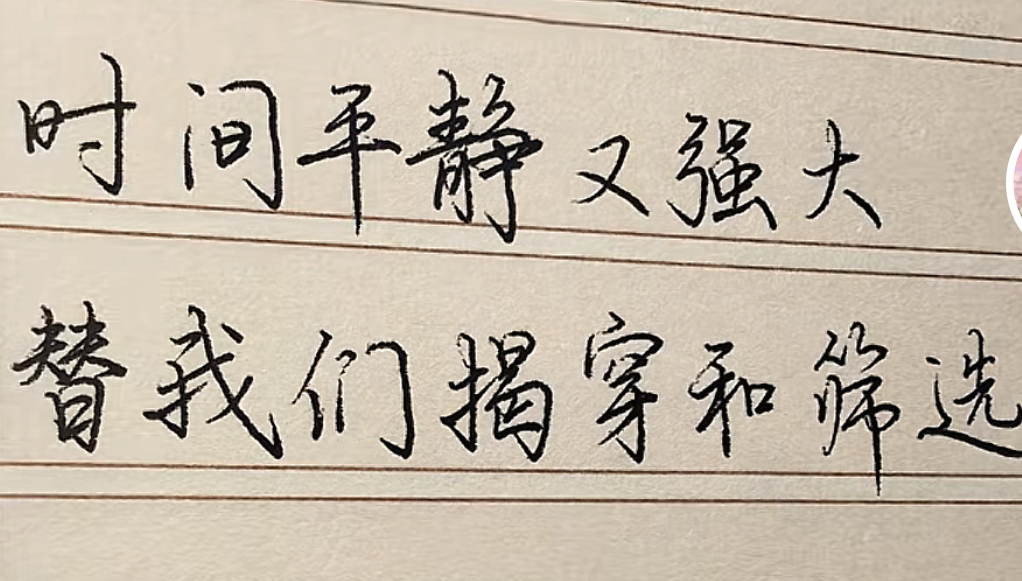 时间平静又强大
替我们揭穿和筛选